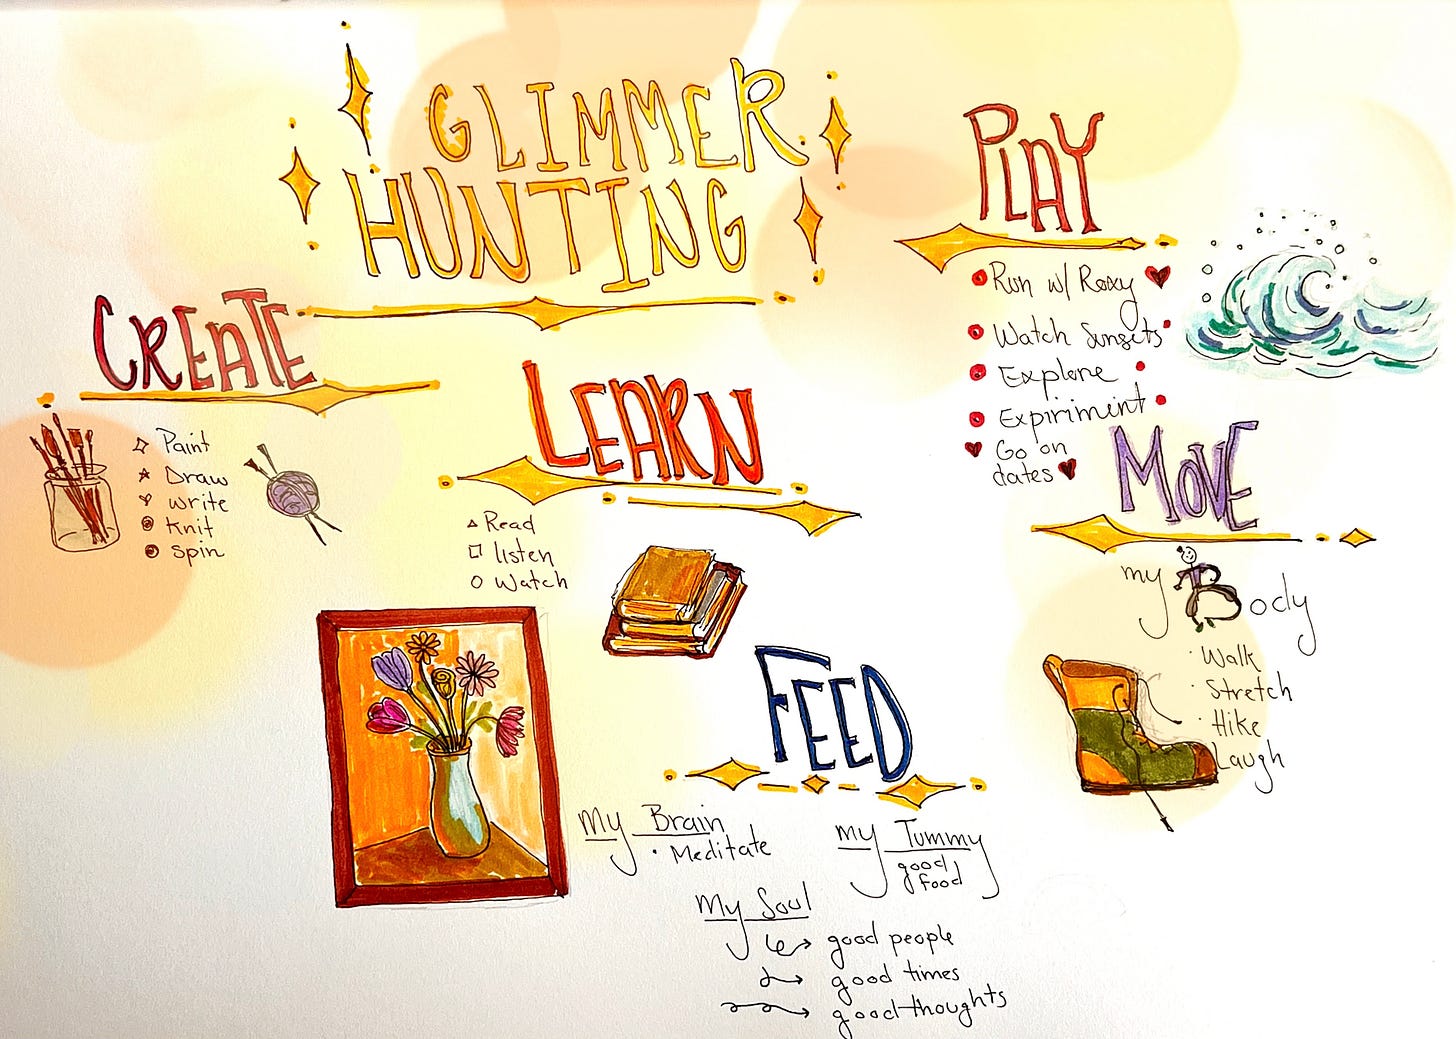 GLIMMER
HUNTING
CREATE
Paint
Draw
write
Knit
spin
LEARN
Read
listen
Watch
PLAY
Run w/ Roxy
Watch Sunsets
Explore
Expiriment
Go on
dates
MOVE
my Body
Walk
Stretch
Hike
Laugh
FEED
My Brain
Meditate
my Tummy
good
food
My Soul
good people
good times
good thoughts